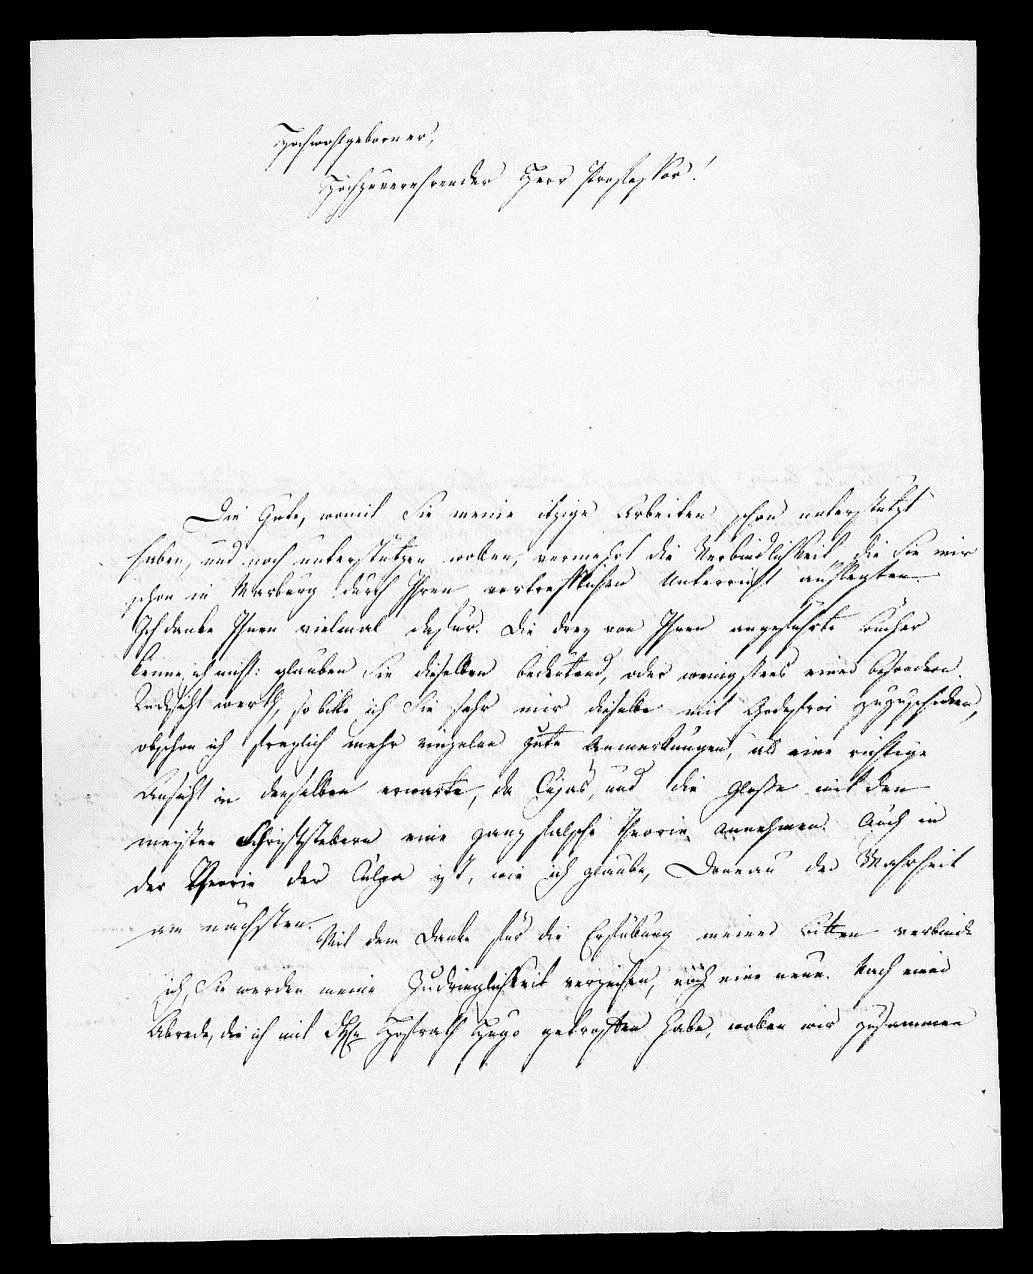 Hochwohlgeborner,
Höchzuverehrender Herr Professor!
Die Güte, womit Sie meine itzige Arbeiten schon unterstützt
haben, und noch unterstützen wollen, vermehrt die Verbindlichkeit, die Sie mir
schon in Marburg durch Ihren vortrefflichen Unterricht auflegten.
Ich danke Ihnen vielmal dafür. Die drey von Ihnen angeführte Bücher
kenne ich nicht: glauben Sie dieselben bedeutend, oder wenigstens einer besondern
Rücksicht werth, so bitte ich Sie sehr mir dieselbe mit Godefroi zuzuschicken,
obschon ich freylich mehr einzelne gute Anmerkungen, als eine richtige
Ansicht in denselben erwarte, da Cujas, und die Glosse mit den
meisten Schriftstellern eine ganz falsche Theorie annehmen. Auch in
der Theorie der Culpa ist, wie ich glaube, Doneau der Wahrheit
am nächsten.
Mit dem Danke für die Erfüllung meiner Bitten verbinde
ich, Sie werden meine Zudringlichkeit verzeihen, noch eine neue. Nach einer
Abrede, die ich mit Hofrath Hugo getroffen habe, wollen wir zusammen